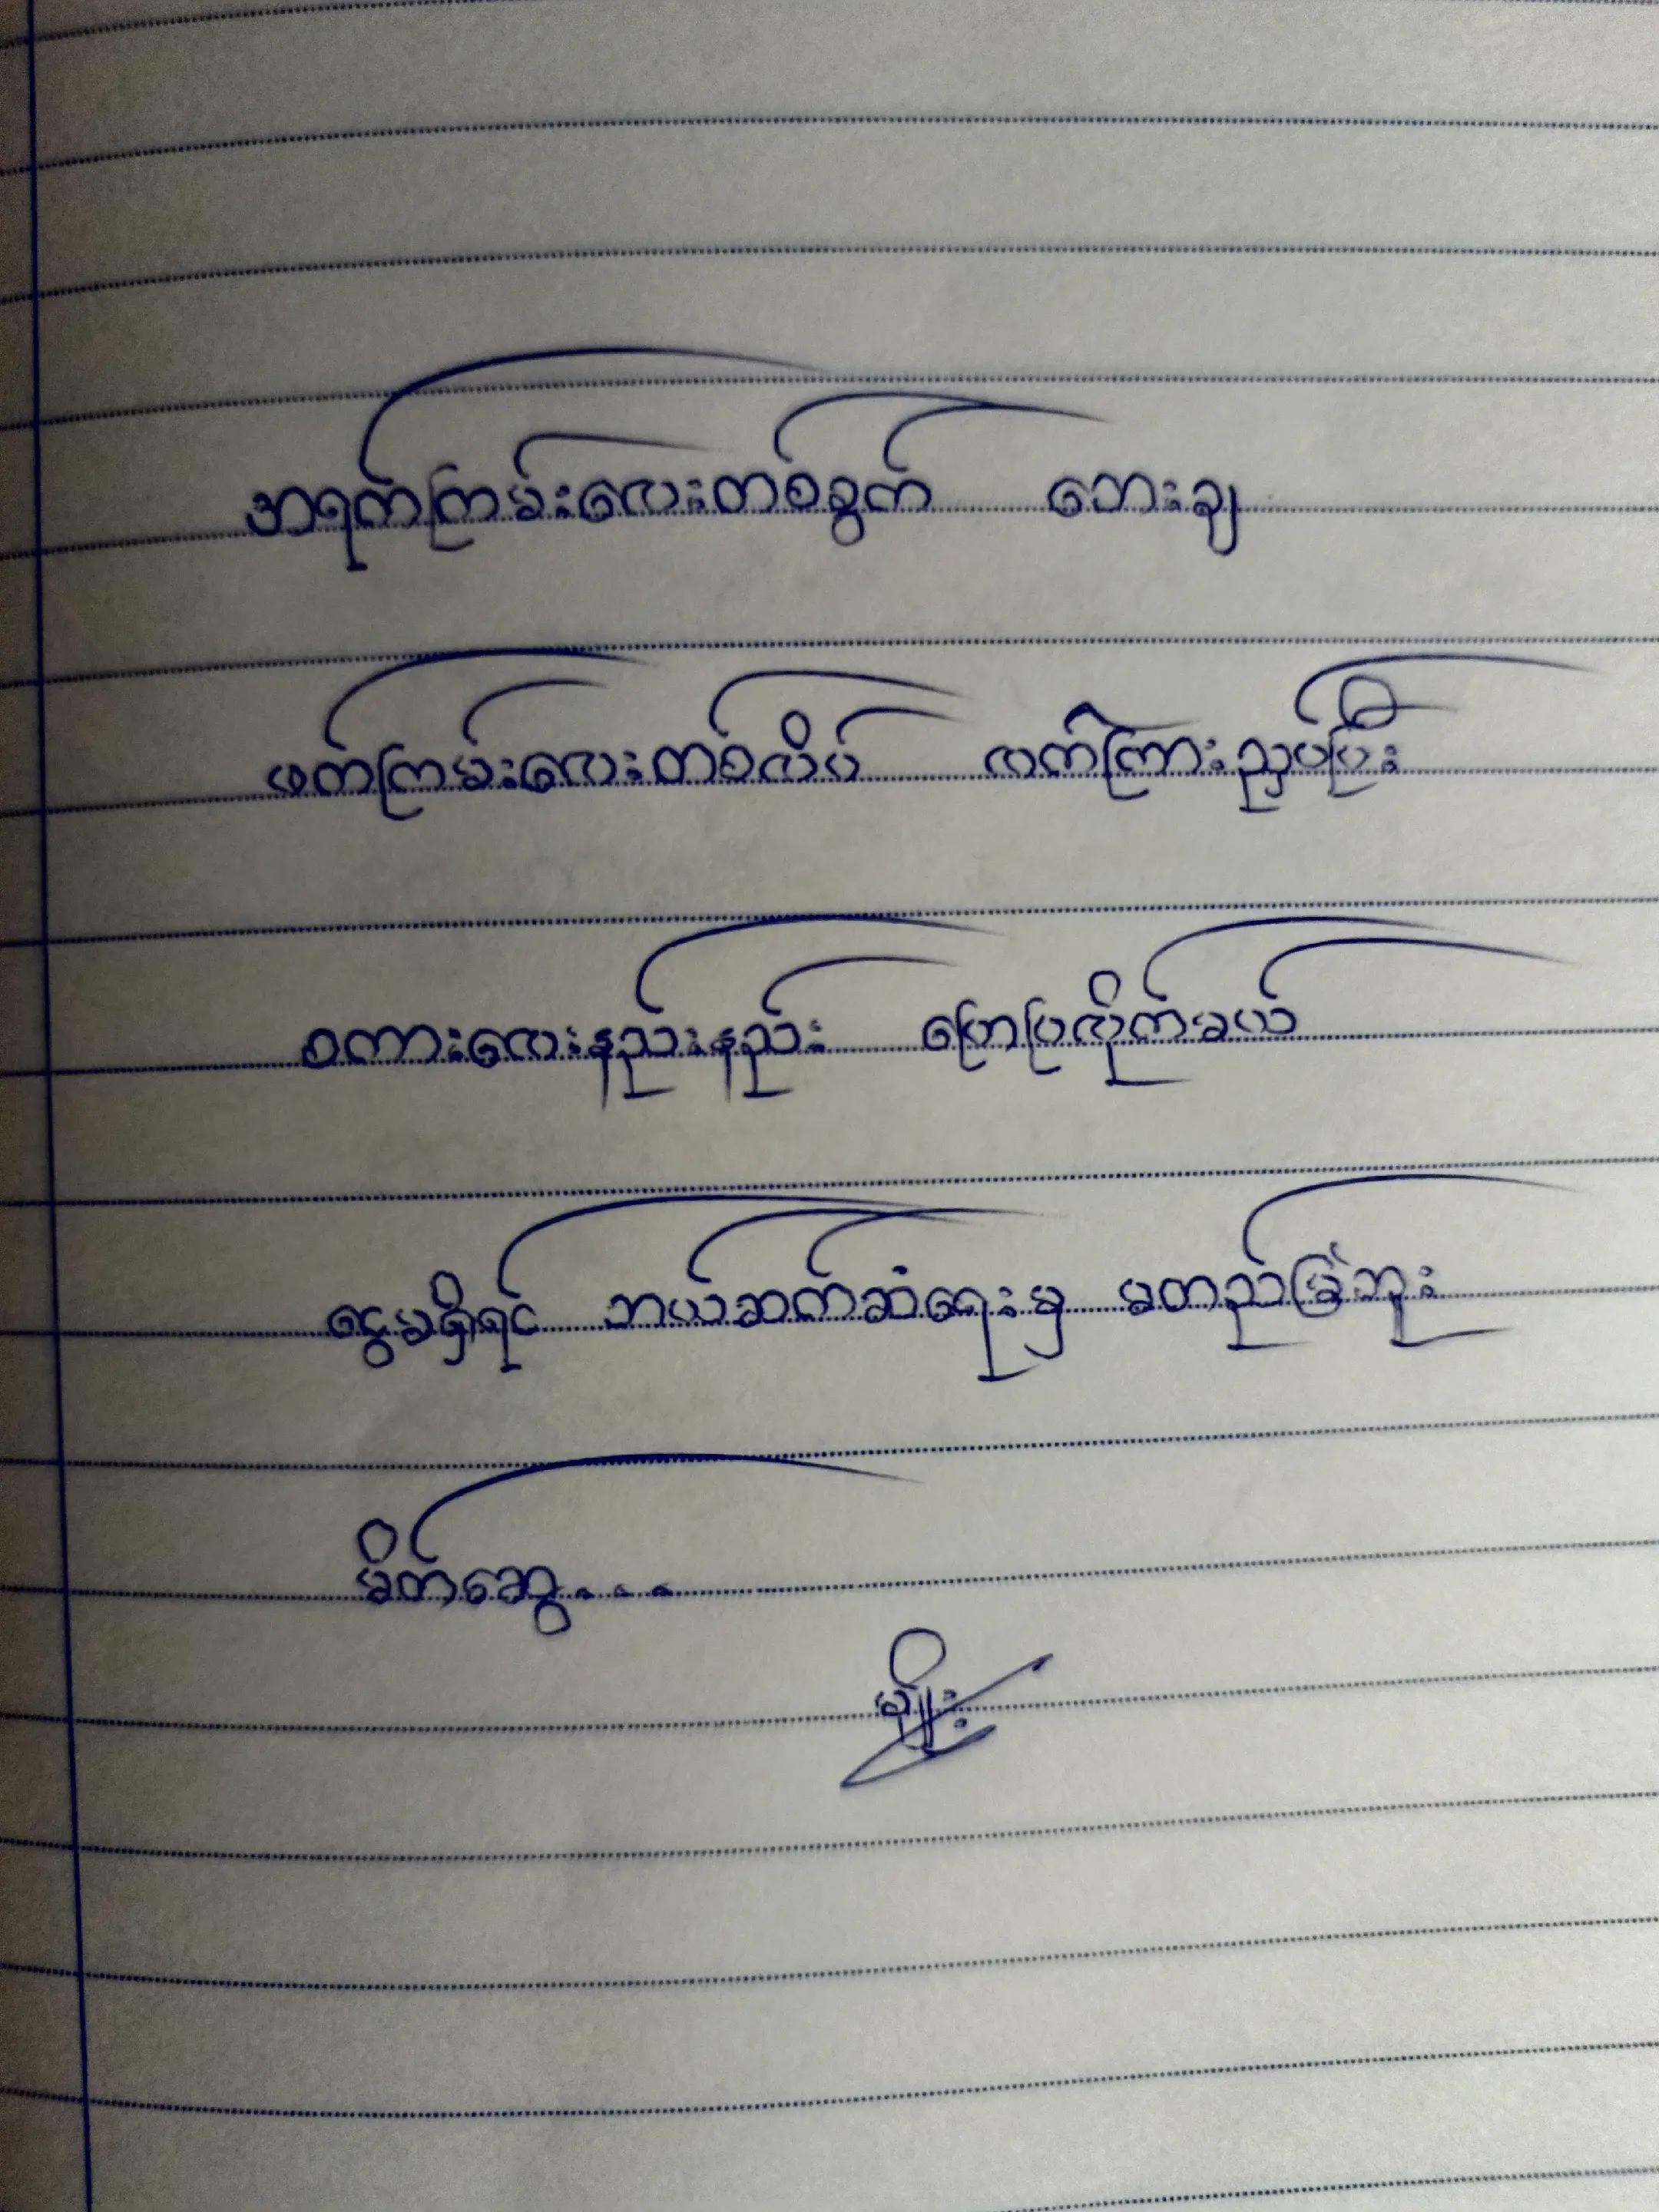 အရက်ကြမ်းလေးတစ်ခွက် ဘေးချ
ဖက်ကြမ်းလေးတစ်လိပ် လက်ကြားညှပ်ပြီး
စကားလေးနည်းနည်း ပြောပြလိုက်မယ်
ငွေမရှိရင် ဘယ်ဆက်ဆံရေးမှ မတည်မြဲဘူး
မိတ်ဆွေ...
မျိုး